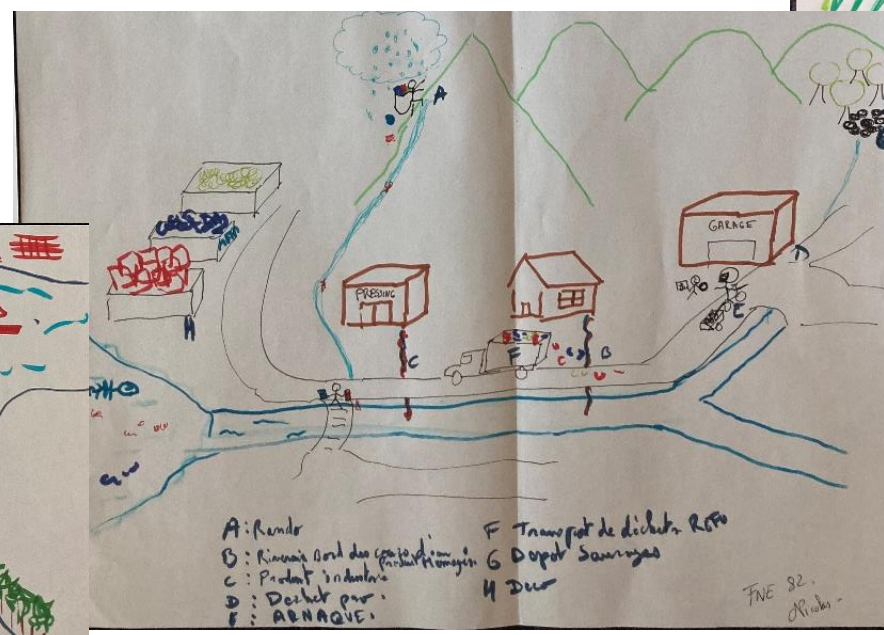 A
GARAGE
D
PRESSING
E
H
F
C
B
A : Rando
B : Riverain Bord des cours d'eau
produit ménager
C : Produit industrie
D : Dechet pro.
E : ARNAQUE.
F Transport de déchets
G Depot Sauvages
H
FNE 82.
Nicolas